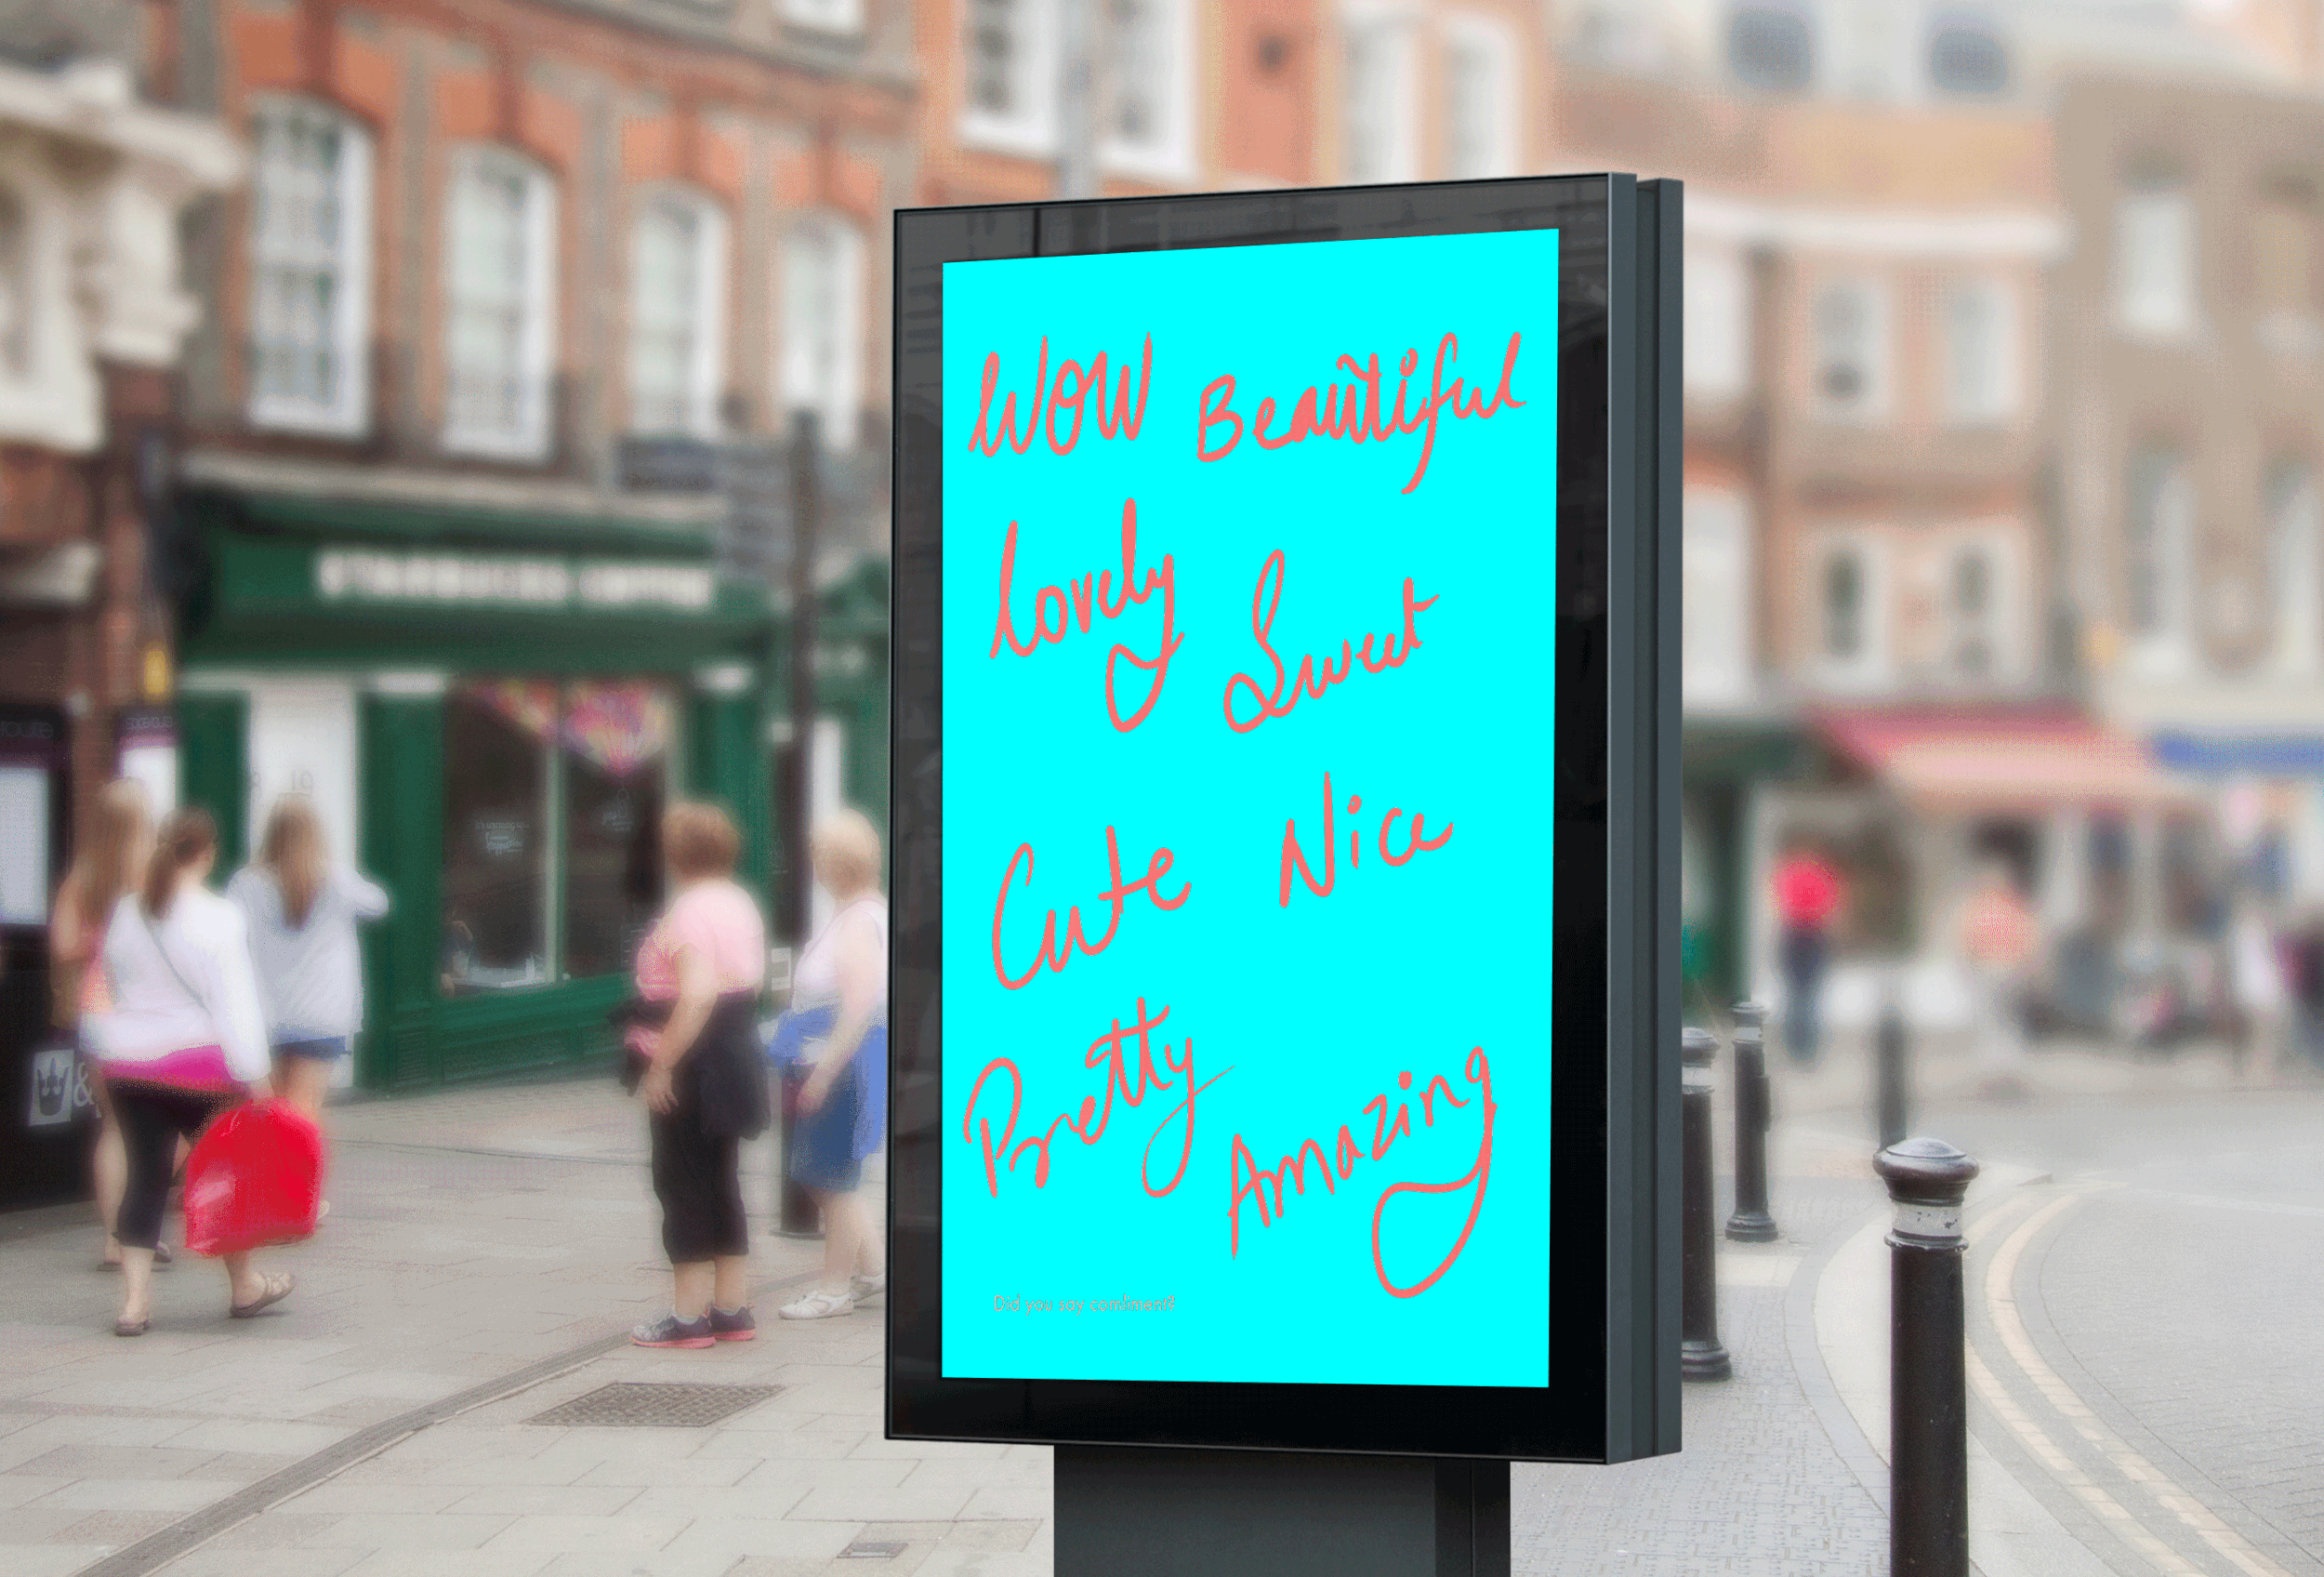 WOW Beautiful
Lovely Sweet
Cute Nice
Pretty Amazing
Did you say comliment?
STARBUCKS COFFEE